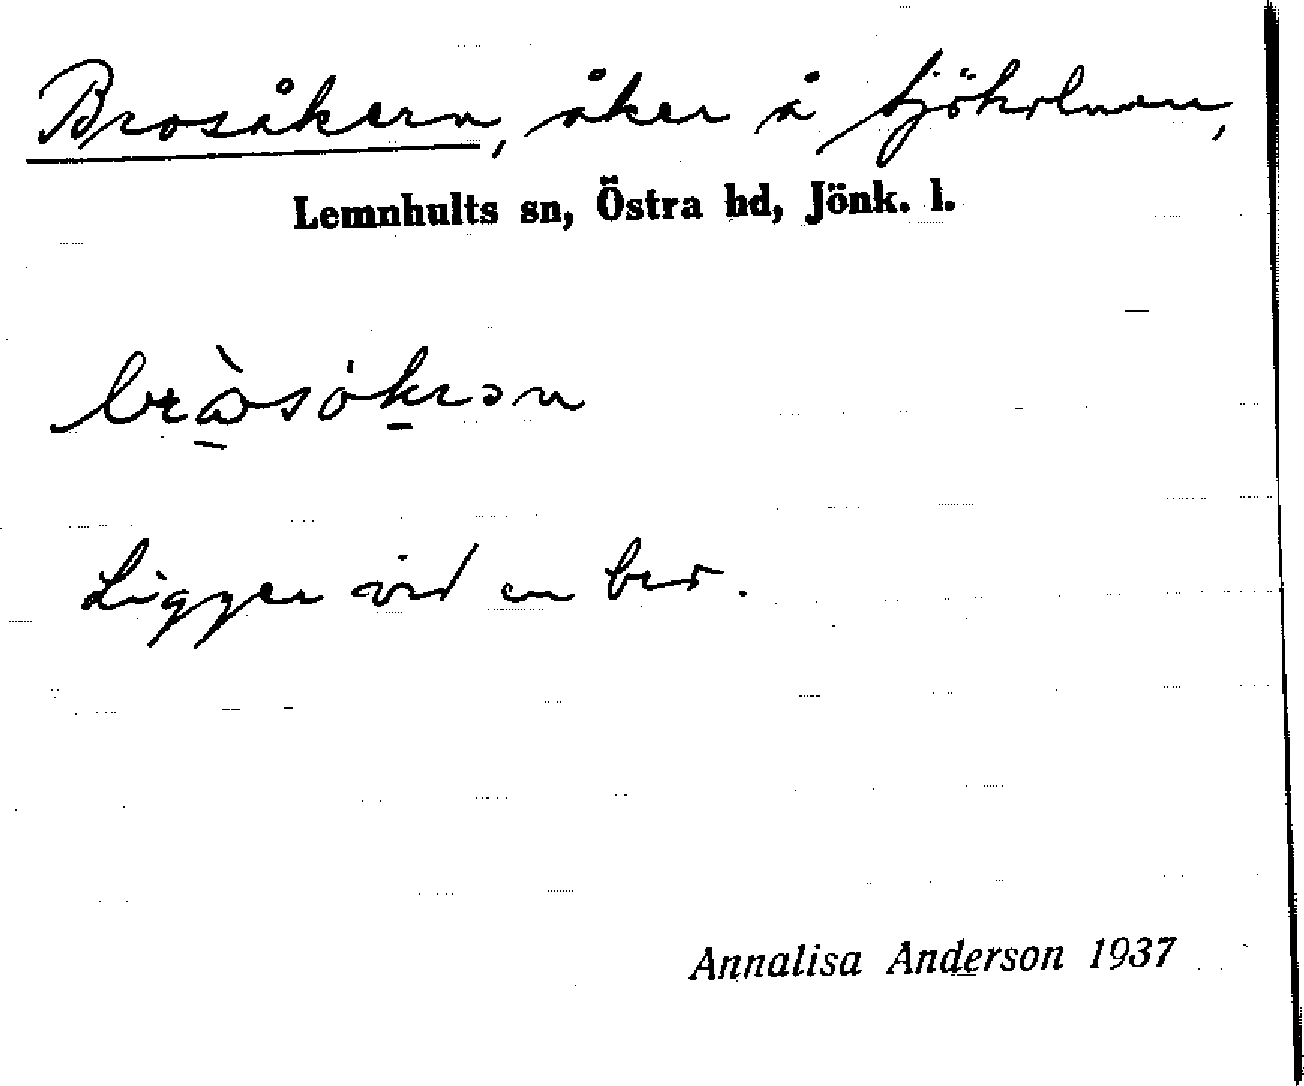 Brosåkern, åker å Sjöholmen,
Lemnhults sn, Östra hd, Jönk. l.
Ligger vid en bro.
Annalisa Anderson 1937